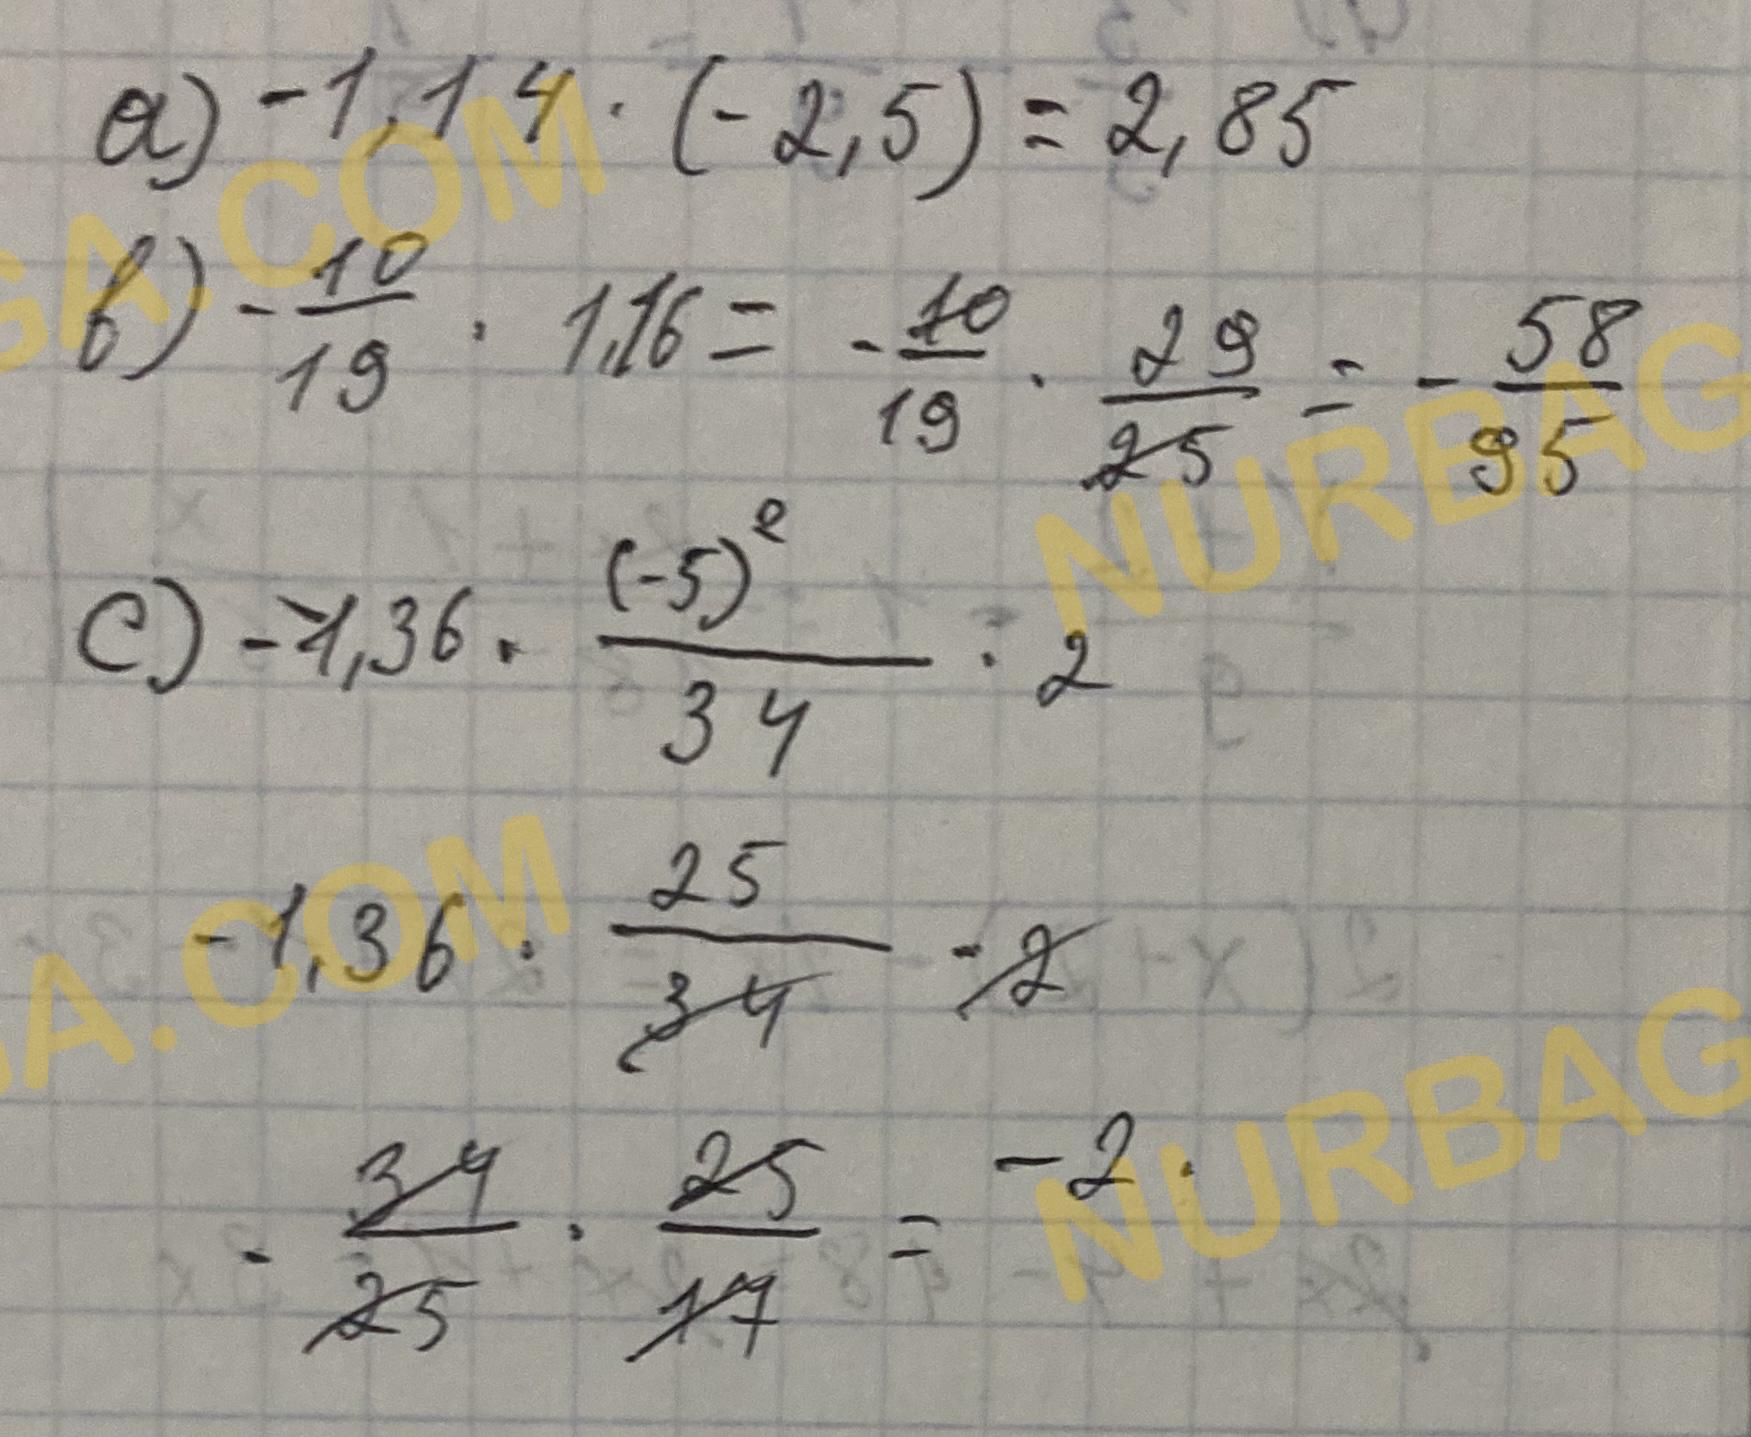 a) -1,14 · (-2,5) = 2,85
b) - 10/19 · 1,16 = - 10/19 · 29/25 = - 58/95
c) -1,36 · (-5)²/34 · 2
-1,36 · 25/34 · 2
- 34/25 · 25/17 = -2.
GA.COM
NURBAG
GA.COM
NURBAG